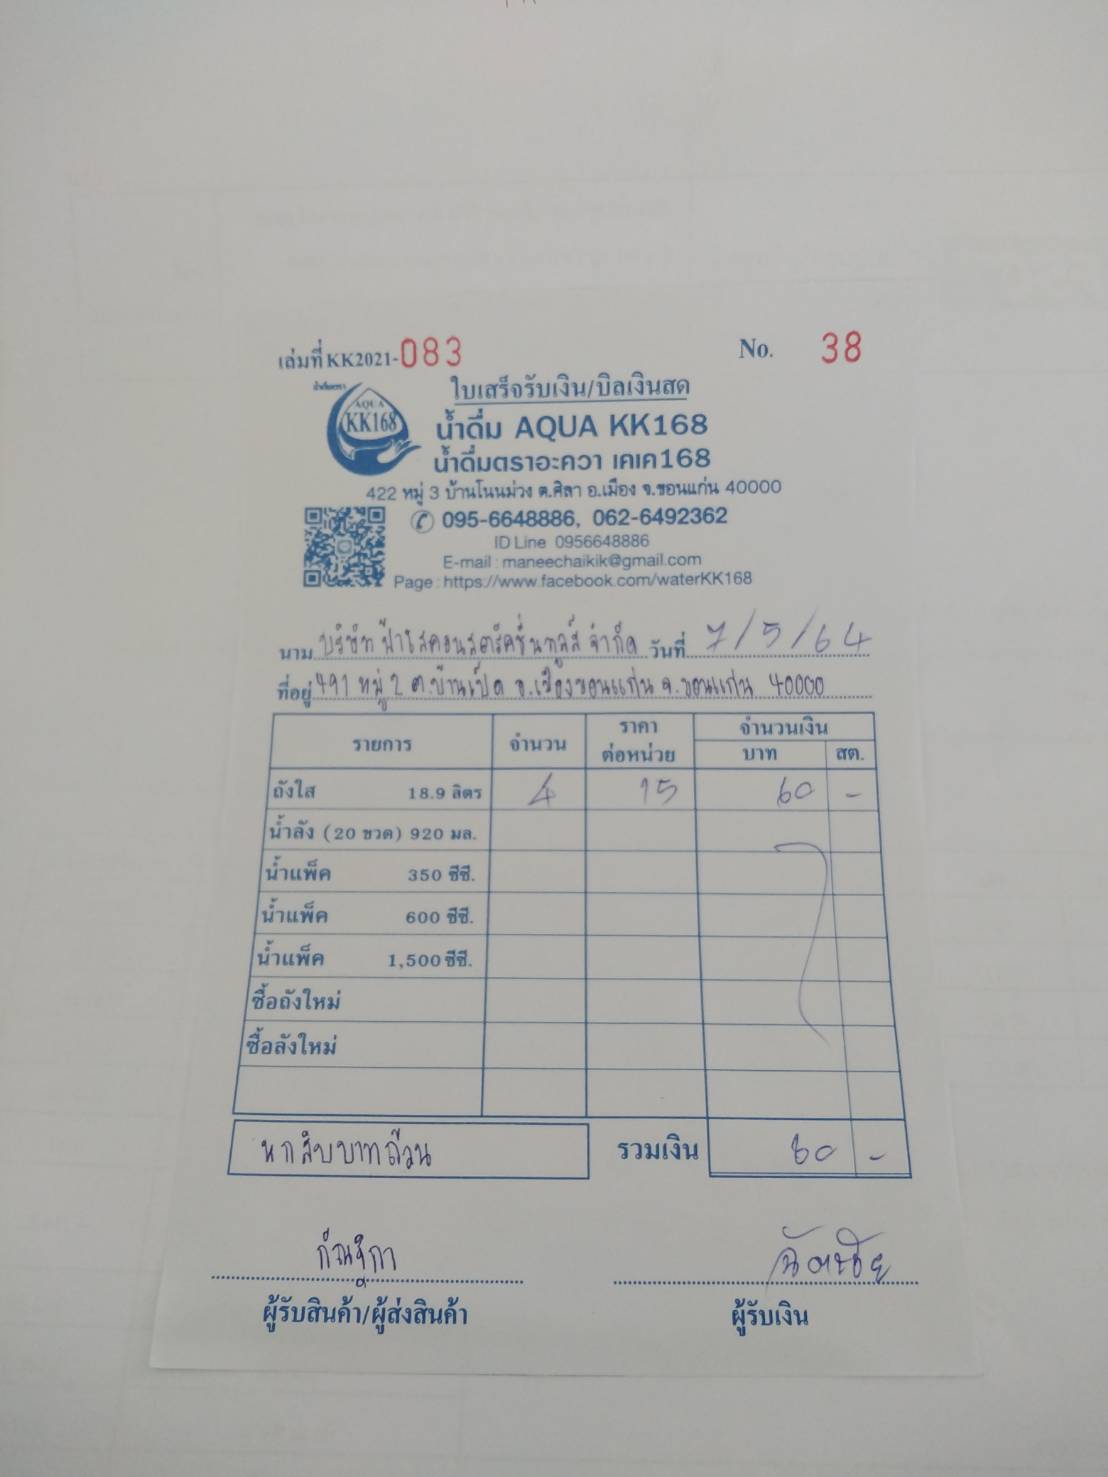 เล่มที่ KK2021-083 No. 38
ใบเสร็จรับเงิน/บิลเงินสด
AQUA
KK168
น้ำดื่ม AQUA KK168
น้ำดื่มตราอะควา เคเค168
422 หมู่ 3 บ้านโนนม่วง ต.ศิลา อ.เมือง จ.ขอนแก่น 40000
095-6648886, 062-6492362
ID Line 0956648886
E-mail : maneechaikik@gmail.com
Page : https://www.facebook.com/waterKK168
นาม บริษัท จำกัด วันที่ 7/5/64
ที่อยู่ 491 หมู่ 2 ต.บ้านเป็ด อ.เมืองขอนแก่น จ.ขอนแก่น 40000
รายการ จำนวน ราคาต่อหน่วย จำนวนเงิน
บาท สต.
ถังใส 18.9 ลิตร 4 15 60 -
น้ำลัง (20 ขวด) 920 มล.
น้ำแพ็ค 350 ซีซี.
น้ำแพ็ค 600 ซีซี.
น้ำแพ็ค 1,500 ซีซี.
ซื้อถังใหม่
ซื้อลังใหม่
หกสิบบาทถ้วน รวมเงิน 60 -
ผู้รับสินค้า/ผู้ส่งสินค้า ผู้รับเงิน